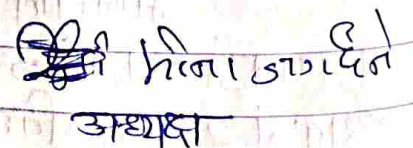 मीना जगधने
अध्यक्ष